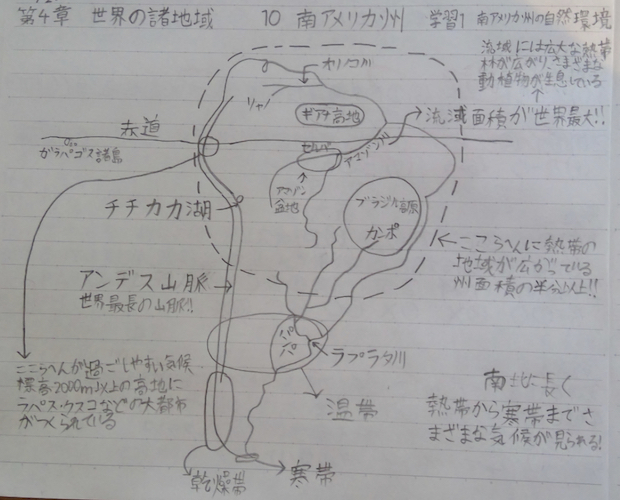 第4章 世界の諸地域 10 南アメリカ州 学習1 南アメリカ州の自然環境
流域には広大な熱帯
林が広がり、さまざまな
動植物が生息している
オリノコ川
リャノ
ギアナ高地
流域面積が世界最大!!
赤道
ガラパゴス諸島
セルバ
アマゾン川
アマゾン
盆地
ブラジル高原
カンポ
チチカカ湖
ここらへんに熱帯の
地域が広がっている
州面積の半分以上!!
アンデス山脈
世界最長の山脈!!
パンパ
ラプラタ川
ここらへんが過ごしやすい気候
標高2000m以上の高地に
ラパス・クスコなどの大都市
がつくられている
温帯
南北に長く
熱帯から寒帯までさ
まざまな気候が見られる!
乾燥帯
寒帯